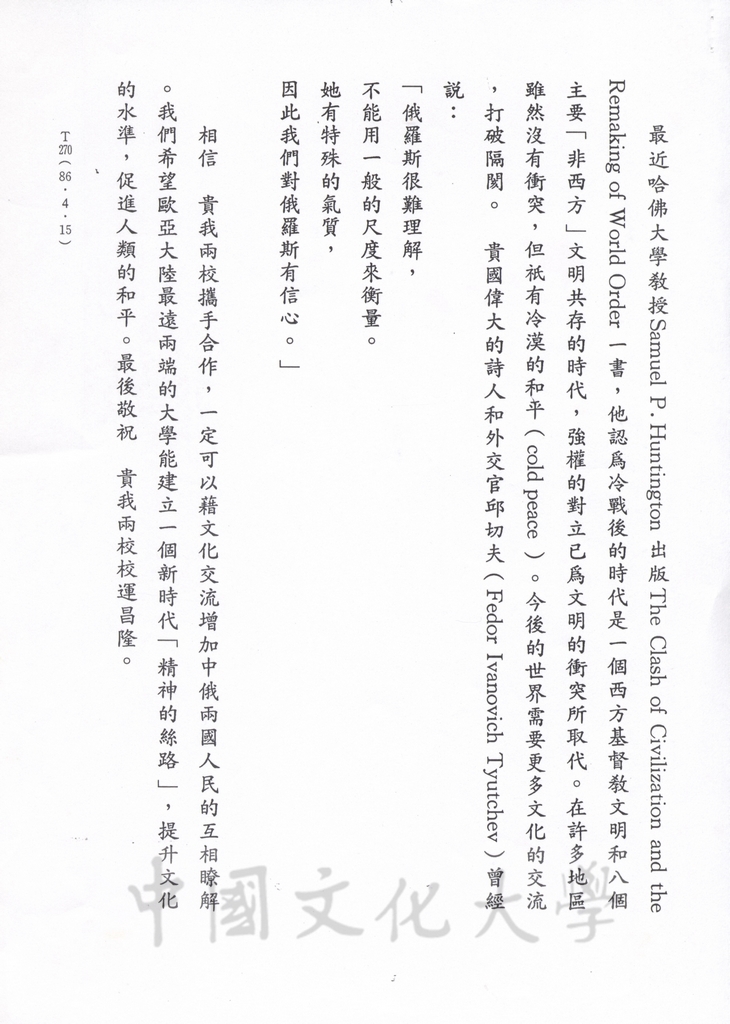 最近哈佛大學教授Samuel P. Huntington 出版The Clash of Civilization and the
Remaking of World Order 一書，他認為冷戰後的時代是一個西方基督教文明和八個
主要「非西方」文明共存的時代，強權的對立已為文明的衝突所取代。在許多地區
雖然沒有衝突，但祇有冷漠的和平（cold peace）。今後的世界需要更多文化的交流
，打破隔閡。 貴國偉大的詩人和外交官邱切夫（Fedor Ivanovich Tyutchev）曾經
說：
「俄羅斯很難理解，
不能用一般的尺度來衡量。
她有特殊的氣質，
因此我們對俄羅斯有信心。」
相信 貴我兩校攜手合作，一定可以藉文化交流增加中俄兩國人民的互相瞭解
。我們希望歐亞大陸最遠兩端的大學能建立一個新時代「精神的絲路」，提升文化
的水準，促進人類的和平。最後敬祝 貴我兩校校運昌隆。
T270（86．4．15）
中國文化大學